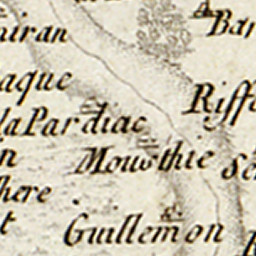 Bar
iran
aque
Riffo
la Pardiac
n
Mousthie
Se
here
t
Guillemon